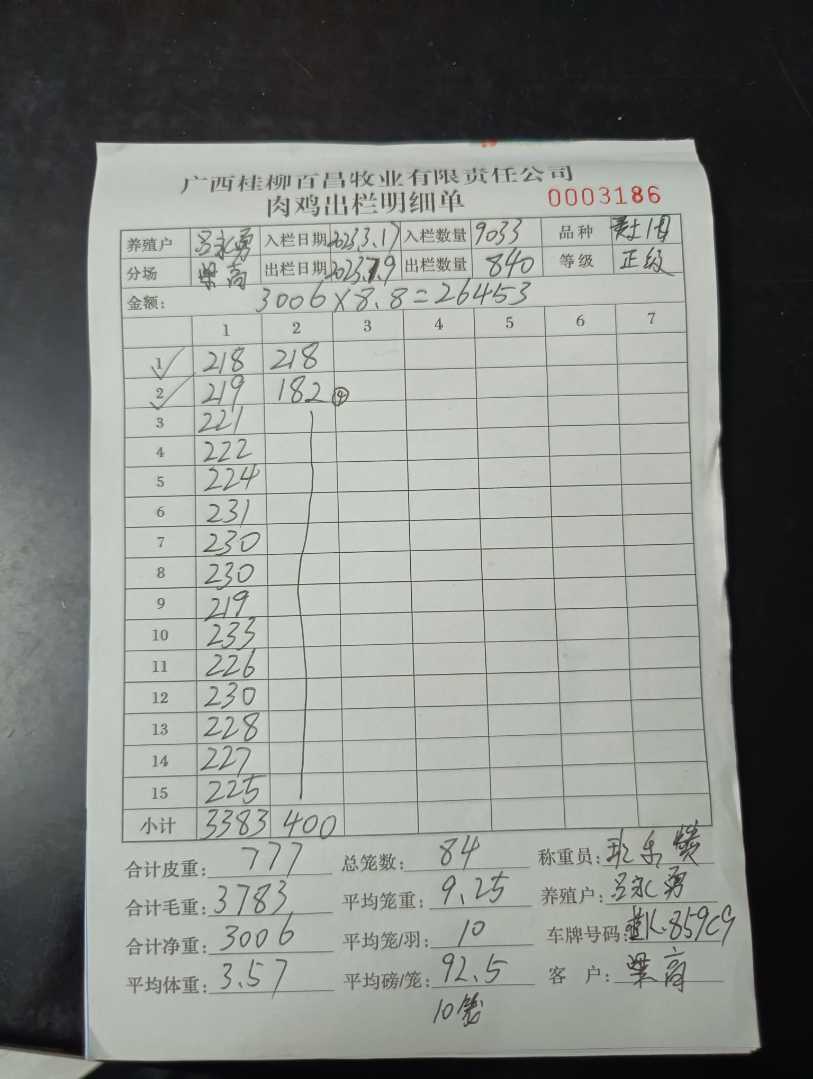 广西桂柳百昌牧业有限责任公司
肉鸡出栏明细单 0003186
养殖户 吕永勇 入栏日期 2023.3.17 入栏数量 9033 品种
分场 出栏日期 2023.7.9 出栏数量 840 等级 正级
金额: 3006×8.8=26453
1 2 3 4 5 6 7
1 218 218
2 219 182 ④
3 221
4 222
5 224
6 231
7 230
8 230
9 219
10 233
11 226
12 230
13 228
14 227
15 225
小计 3383 400
合计皮重: 777 总笼数: 84 称重员:
合计毛重: 3783 平均笼重: 9.25 养殖户: 吕永勇
合计净重: 3006 平均笼/羽: 10 车牌号码: K.859C9
平均体重: 3.57 平均磅/笼: 92.5 客 户:
10笼